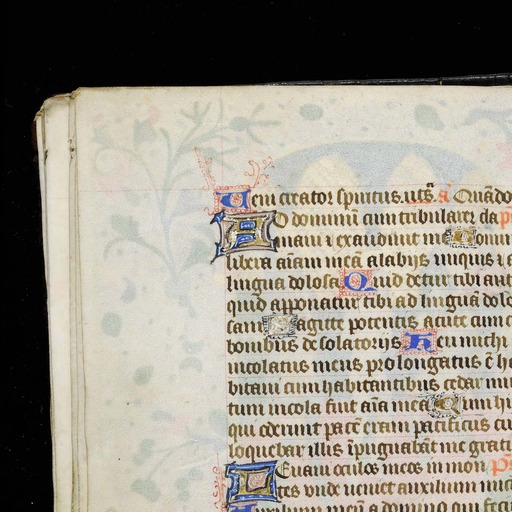 Ueni creator spiritus. uts̄. a Quādo
AD dominū cum tribularer cla ps
maui ⁊ exaudiuit me Domi
libera aīam meā a labijs iniquis ⁊ a
lingua dolosa Quid detur tibi aut
quid apponatur tibi ad linguā dolo
sam Sagitte potentis acute cum c
bonibus desolatorijs Heu michi
incolatus meus prolongatus ē ha
bitaui cum habitantibus cedar mu
tum incola fuit aīa mea Cum hi
qui oderunt pacē eram pacificus cu
loquebar illis īpugnabāt me grati
LEuaui oculos meos in mon ps
tes unde ueniet auxilium mic
Auxilium meū a domino qui feci